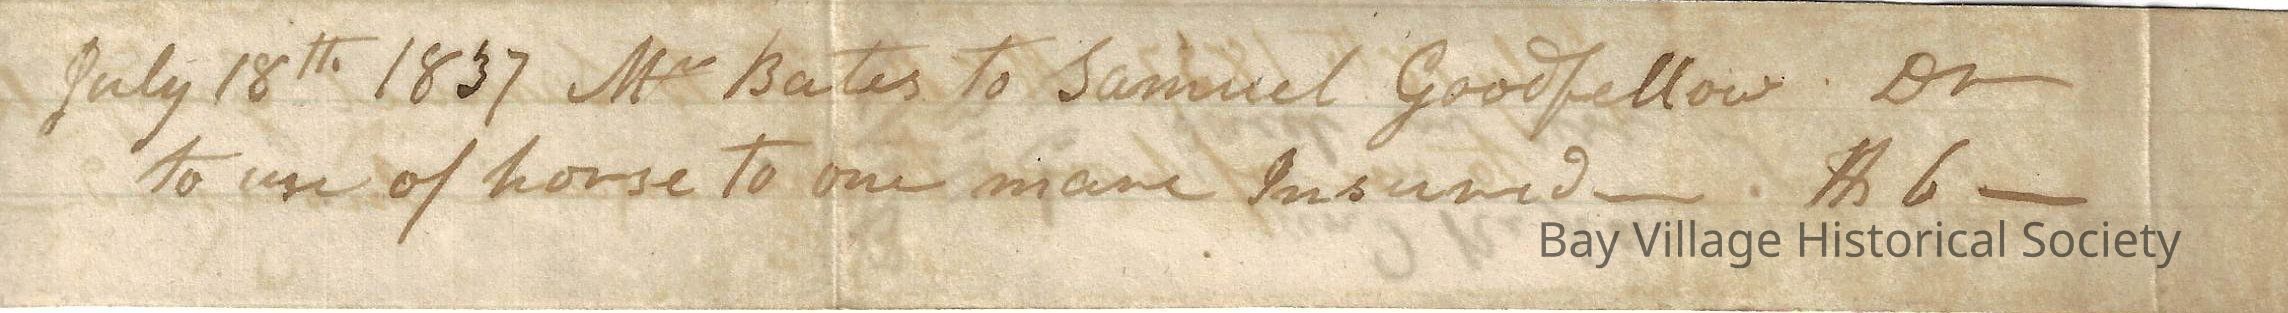 July 18th. 1837 Mr Bates to Samuel Goodfellow Dr
to use of horse to one mare Insured — . $ 6 —
Bay Village Historical Society